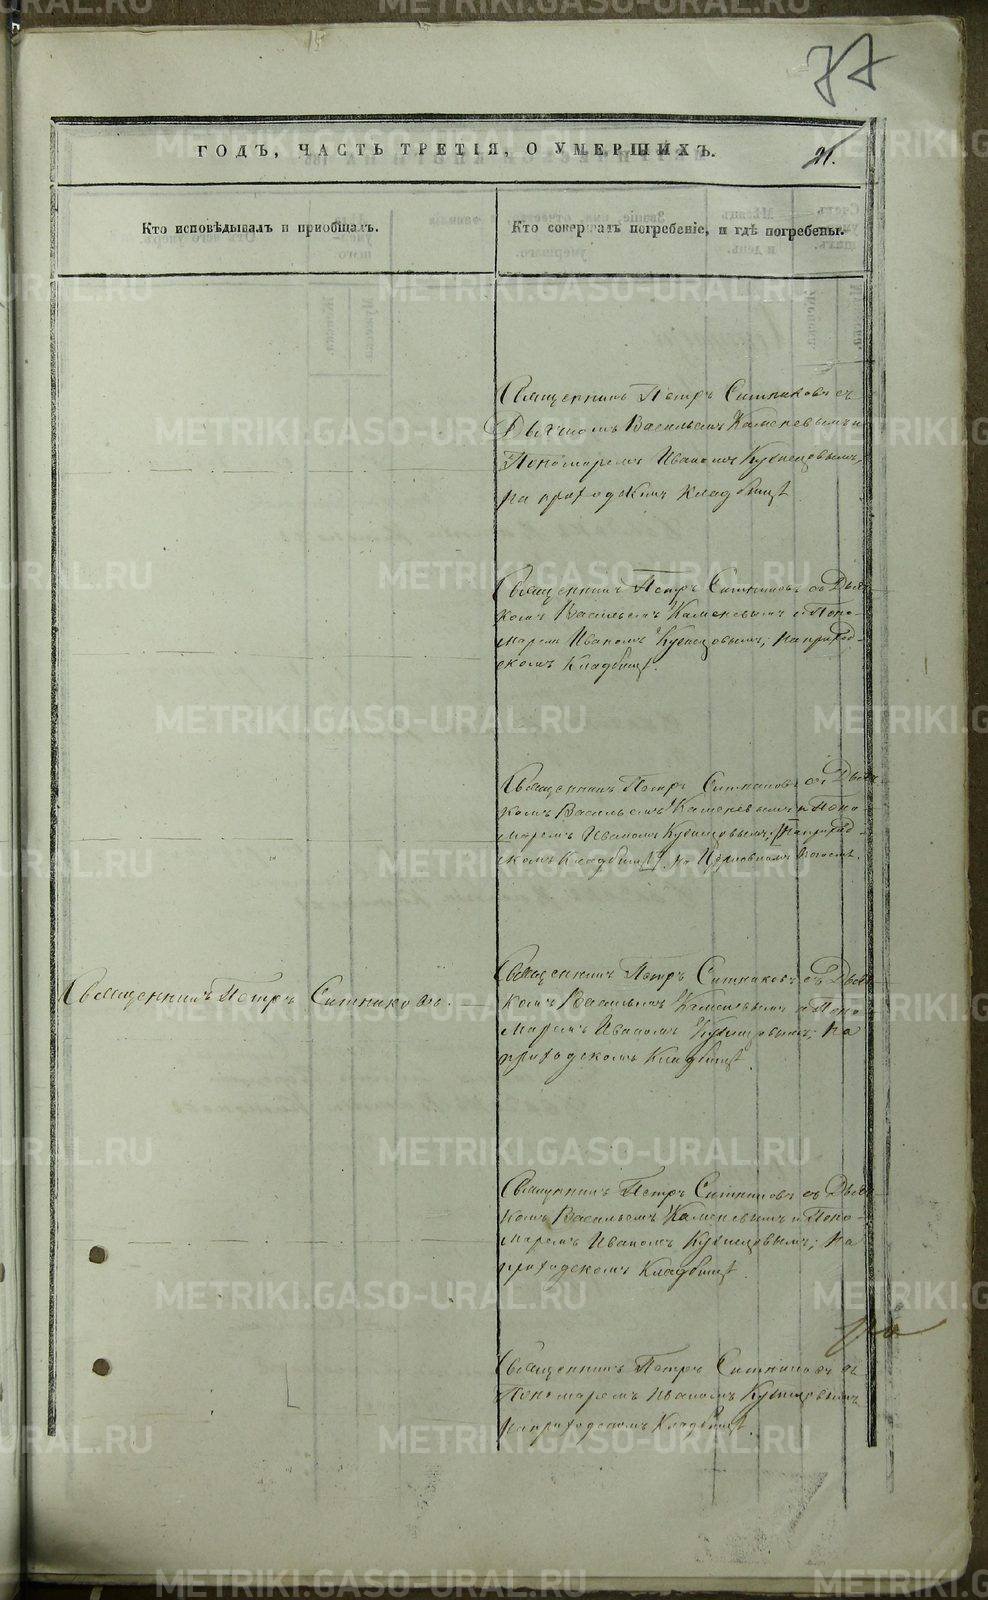 77
ГОДЪ, ЧАСТЬ ТРЕТІЯ, О УМЕРШИХЪ.
21.
Кто исповѣдывалъ и пріобщалъ.
Кто совершалъ погребеніе, и гдѣ погребены.
Священникъ Петръ Ситниковъ съ
Дьячкомъ Васильемъ Каменевымъ и
Пономаремъ Иваномъ Кузнецовымъ,
на приходскомъ кладбищѣ.
Священникъ Петръ Ситниковъ съ Дьяч-
комъ Васильемъ Каменевымъ и Поно-
маремъ Иваномъ Кузнецовымъ; на приход-
скомъ кладбищѣ.
Священникъ Петръ Ситниковъ съ Дьяч-
комъ Васильемъ Каменевымъ и Поно-
маремъ Иваномъ Кузнецовымъ; [на приход-
скомъ кладбищѣ] на Церковномъ погостѣ.
Священникъ Петръ Ситниковъ.
Священникъ Петръ Ситниковъ съ Дьяч-
комъ Васильемъ Каменевымъ и Поно-
маремъ Иваномъ Кузнецовымъ; на
приходскомъ кладбищѣ.
Священникъ Петръ Ситниковъ съ Дьяч-
комъ Васильемъ Каменевымъ и Поно-
маремъ Иваномъ Кузнецовымъ; на
приходскомъ кладбищѣ.
Священникъ Петръ Ситниковъ съ
Пономаремъ Иваномъ Кузнецовымъ
на приходскомъ кладбищѣ.
METRIKI.GASO-URAL.RU